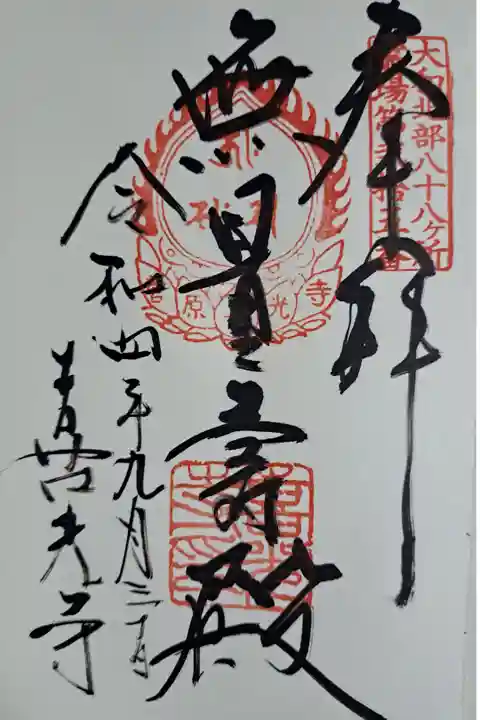 奉拝
大和北部八十八ヶ所
霊場第弐拾五番
無量壽殿
菅原 光寺
令和四年九月三日
喜光寺